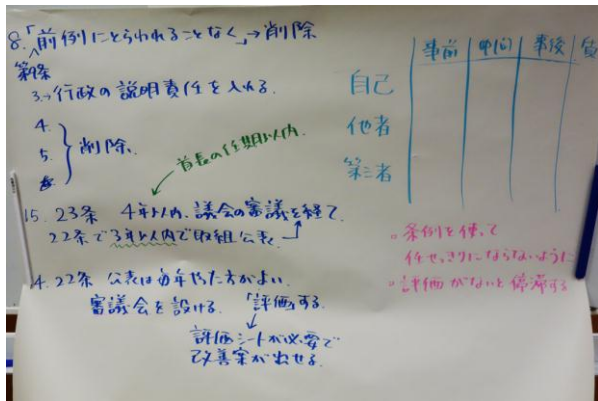 8.「前例にとらわれることなく」→削除
第9条
3.→行政の説明責任を入れる.
4.
5.
削除.
首長の任期以内.
15. 23条 4年以内、議会の審議を経て.
22条で3年以内で取組公表.
14. 22条 公表は毎年やった方がよい.
審議会を設ける. 「評価」する.
評価シートが必要で
改善案が出せる.
事前 中間 事後 負
自己
他者
第三者
○条例を使って
任せっきりにならないように
○評価がないと停滞する